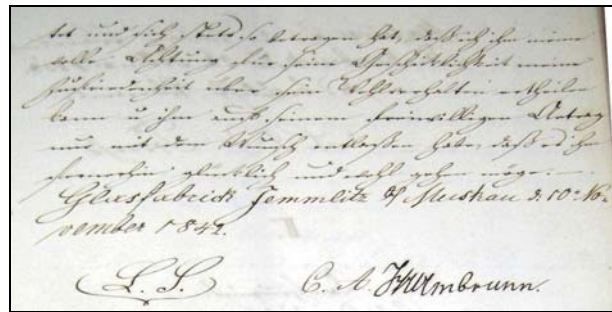 tet und sich stets so betragen hat, daß ich ihm meine
volle Achtung über seine Geschicklichkeit meine
Zufriedenheit über sein Wohlverhalten ertheilen
kann u ihm auf seinem freiwilligen Antrag
nur mit dem Wunsch entlaßen habe, daß es ihm
fernerhin glücklich und wohl gehen möge.
Glasfabrick Jemmlitz b/ Muskau d. 10t No-
vember 1842.
L. S. C. A.